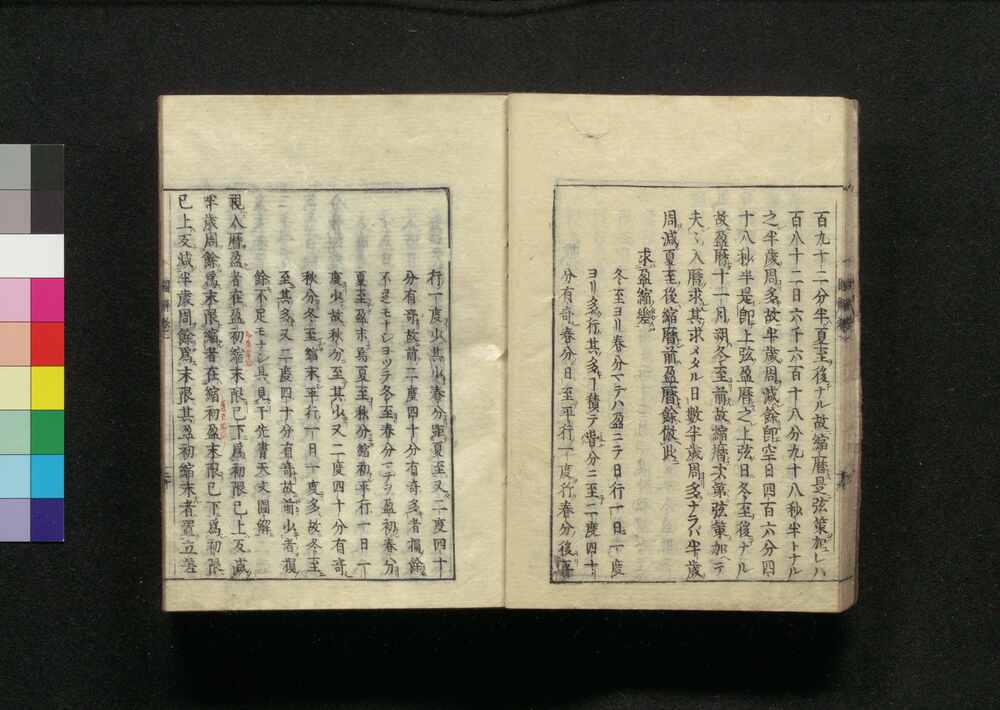 百九十二分半夏至後ナル故縮暦是弦策加レハ
百八十二日六千六百十八分九十八秒半トナル
之半歳周多故半歳周減餘即空日四百六分四
十八秒半是即上弦盈暦之上弦日冬至後ナル
故盈暦十一月朔冬至前故縮暦次第弦策加テ
夫々入暦求其求メタル日數半歳周多ナラハ半歳
周減夏至後縮暦前盈暦餘倣此
求盈縮差
冬至ヨリ春分マテハ盈ニテ日行一日一度
ヨリ多行其多ノ積テ皆分二至二度四十
分有奇春分日至平行一度行春分後
行一度少其少春分距夏至又二度四十
分有奇故前二度四十分有奇多者損餘
不足モナシヨツテ冬至春分マテヲ盈初春分
夏至盈末爲夏至秋分縮初平行一日一
度少故秋分至其少又二度四十分有奇
秋分冬至縮末平行一日一度多故冬至
至其多又二度四十分有奇故前少者損
餘不足モナシ具見于先書天文圖解
視入暦盈者在盈初縮末限已下爲初限已上反減
半歳周餘爲末限縮者在縮初盈末限已下爲初限
已上反減半歳周餘爲末限其盈初縮末者置立差